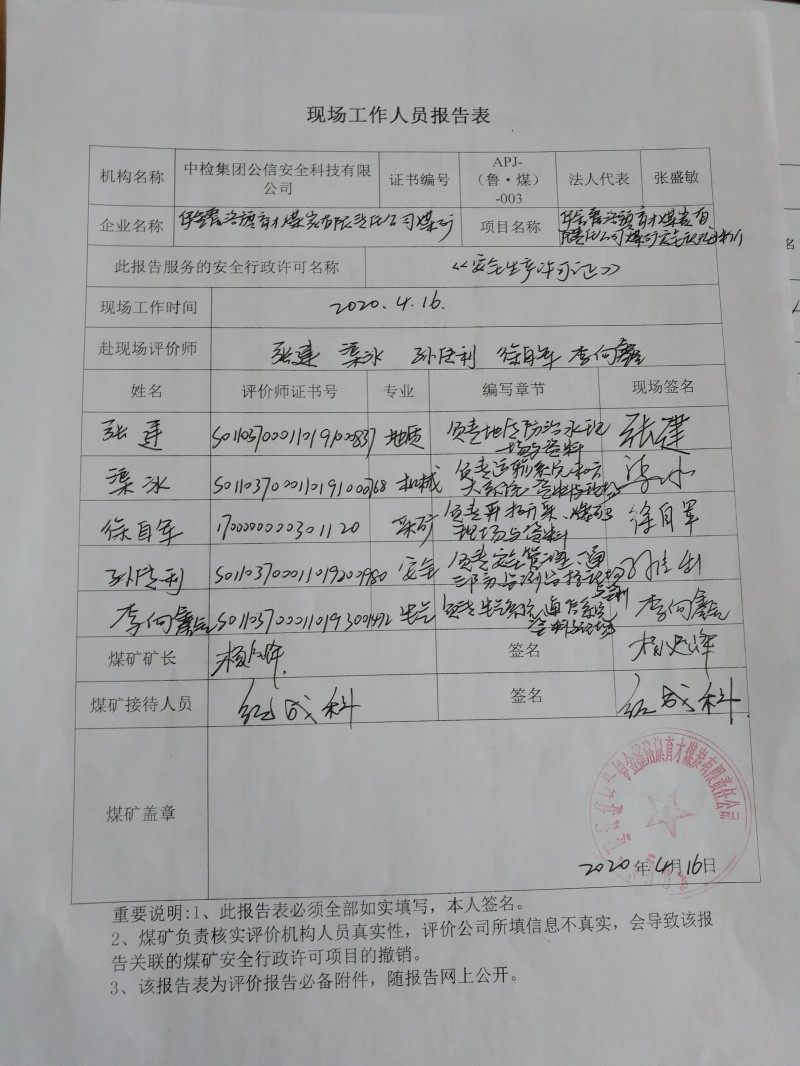 现场工作人员报告表
机构名称 中检集团公信安全科技有限公司 证书编号 APJ-（鲁·煤）-003 法人代表 张盛敏
企业名称 育才煤炭有限责任公司煤矿 项目名称 育才煤炭有
此报告服务的安全行政许可名称 《安全生产许可证》
现场工作时间 2020.4.16.
赴现场评价师 张建 渠冰 孙佳利 徐自军 李向鑫
姓名 评价师证书号 专业 编写章节 现场签名
张建 S011037000110191000837 地质 负责地质防治水现场与资料 张建
渠冰 S011037000110191000768 机械 负责运输系统 渠冰
徐自军 1700000000301120 采矿 负责开采 现场与资料 徐自军
S011037000110192000980 安全 负责安全管理、通
李向鑫 S011037000110193001492 电气 负责电气系统、通信系统 资料与现场 李向鑫
煤矿矿长 签名
煤矿接待人员 纪成科 签名 纪成科
煤矿盖章
育才煤炭有限责任公司
2020年4月16日
重要说明:1、此报告表必须全部如实填写，本人签名。
2、煤矿负责核实评价机构人员真实性，评价公司所填信息不真实，会导致该报
告关联的煤矿安全行政许可项目的撤销。
3、该报告表为评价报告必备附件，随报告网上公开。